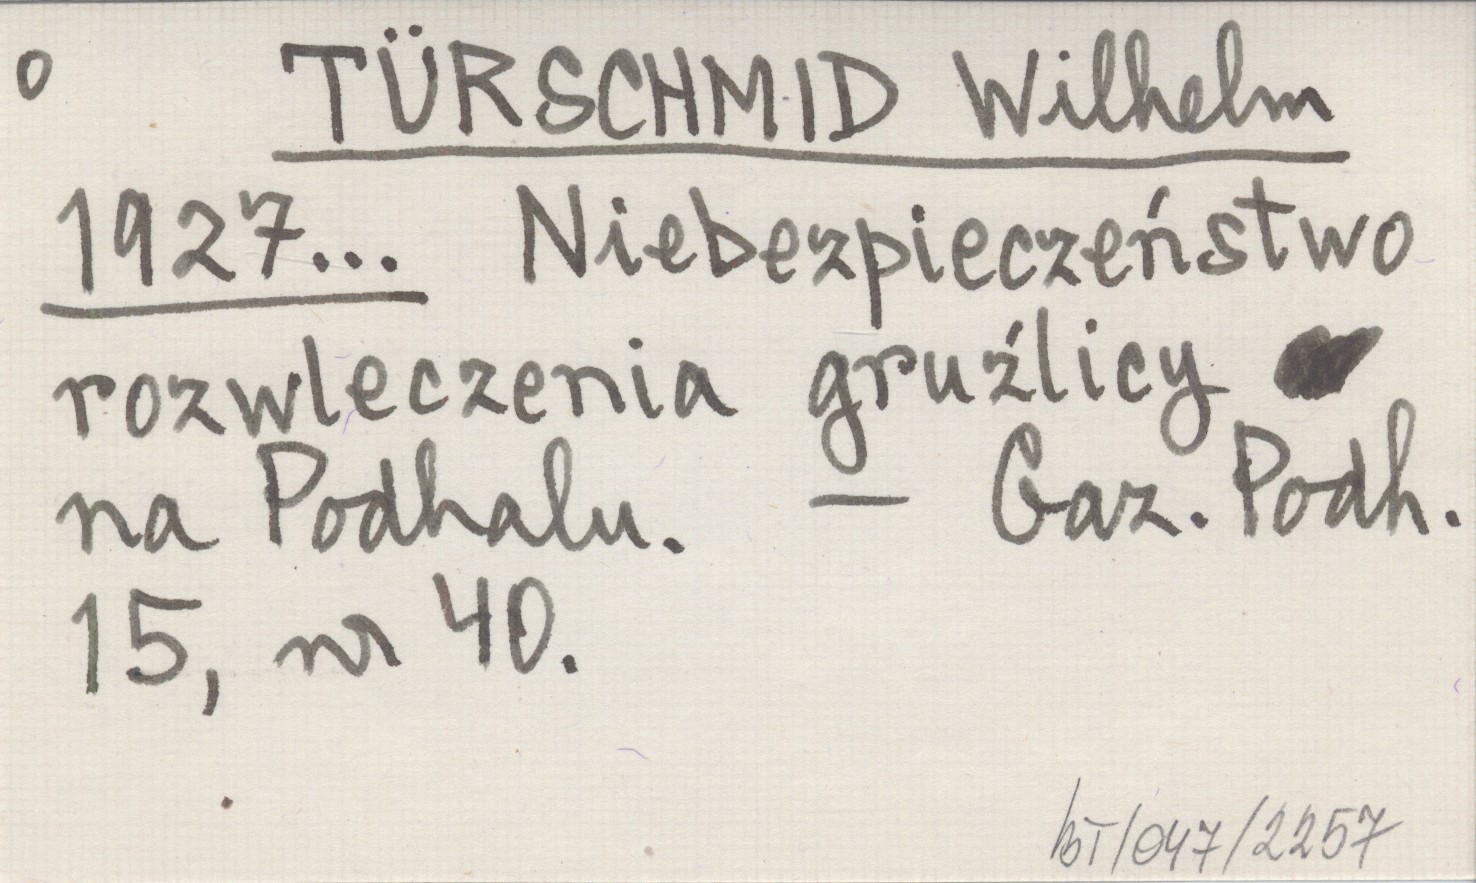 o TÜRSCHMID Wilhelm
1927... Niebezpieczeństwo
rozwleczenia gruźlicy
na Podhalu. — Gaz. Podh.
15, nr 40.
bT/047/2257